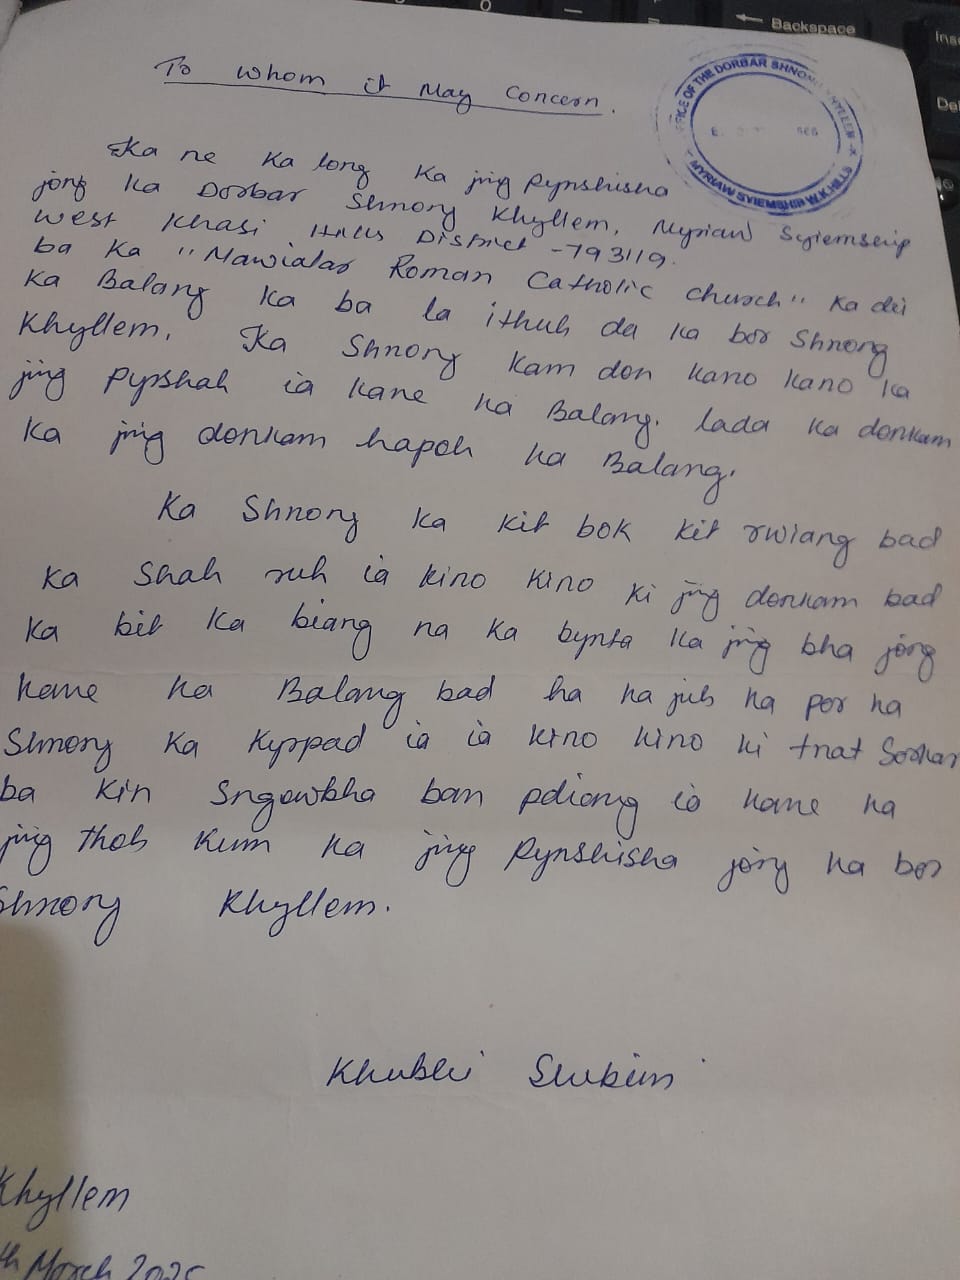 Backspace
Ins
Del
To whom it May Concern.
OFFICE OF THE DORBAR SHNONG KHYLLEM
MYRIAW SYIEMSHIP W.K.HILLS
Ka ne Ka long Ka jing Pynshisha
jong Ka Dorbar Shnong Khyllem, Myriaw Syiemship
West Khasi Hills District -793119.
ba Ka "Mawialar Roman Catholic church" Ka dei
Ka Balang Ka ba la ithuh da ka bor Shnong
Khyllem. Ka Shnong Kam don kano kano ka
jing Pyrshah ia kane ka Balang. lada ka donkam
Ka jing donkam hapoh ka Balang.
Ka Shnong ka kit bok kit rwiang bad
Ka Shah ruh ia kino kino ki jing donkam bad
Ka bit Ka biang na ka bynta ka jing bha jong
kane ka Balang bad ha ka juh ka por ka
Shnong Ka Kyrpad ia ia kino kino ki tnat Sorkar
ba Kin Sngewbha ban pdiang ia kane ka
jing thoh Kum ka jing Pynshisha jong ka bor
Shnong Khyllem.
Khublei Shibun
Khyllem
th March 2025